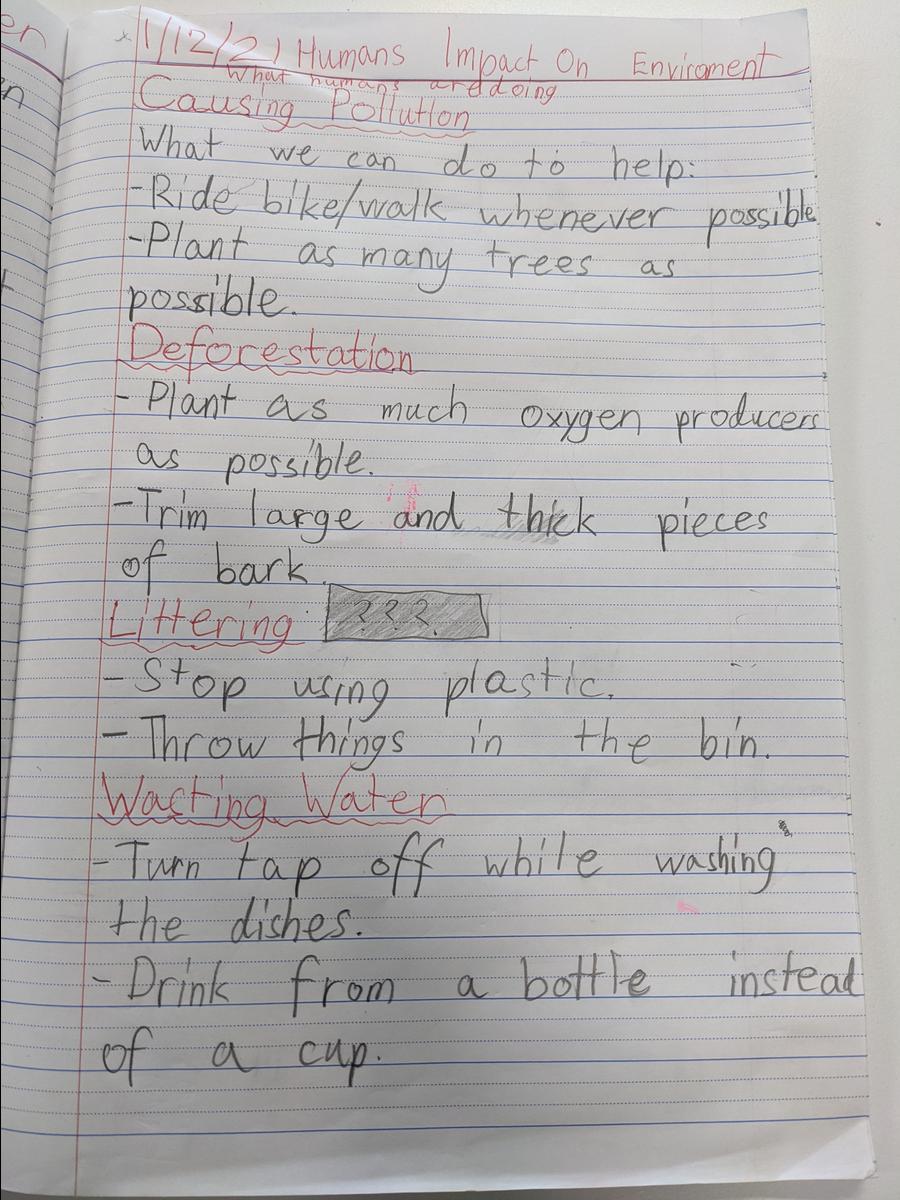 1/12/21 Humans Impact On Enviroment
What humans are doing
Causing Pollution
What we can do to help:
-Ride bike/walk whenever possible
-Plant as many trees as
possible.
Deforestation
- Plant as much oxygen producers
as possible.
-Trim large and thick pieces
of bark.
Littering ???
- Stop using plastic.
- Throw things in the bin.
Wasting Water
-Turn tap off while washing
the dishes.
- Drink from a bottle instead
of a cup.